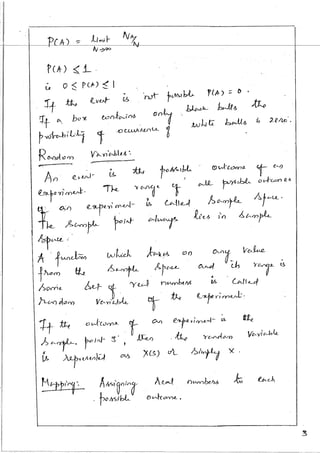 P(A) = Limit NA/N
N→∞
P(A) ≤ 1.
is 0 ≤ P(A) ≤ 1
If the event is not possible P(A) = 0.
If a box contains only black balls the
probability of occurrence of white balls is zero.
Random Variables:
An event is the possible outcome of an
experiment. The range of all possible outcomes
of an experiment is called Sample Space.
The Sample point always lies in Sample
Space.
A function which takes on any value
from the Sample Space and its range is
some set of real numbers is called
random Variable of the experiment.
If the outcome of an experiment is the
sample point 'S', then the random Variable
is represented as X(S) or Simply X.
Mapping: Assigning real numbers to each
possible outcome.
3